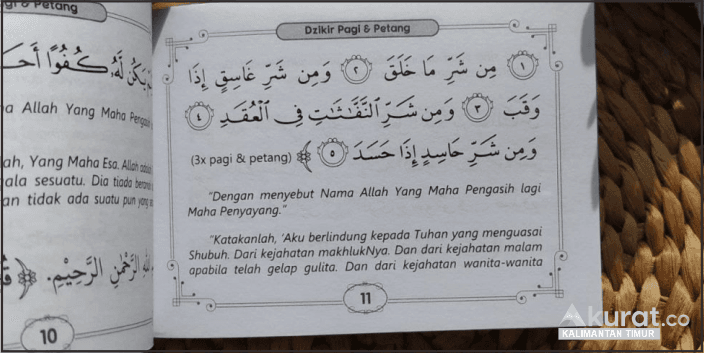 Petang
يَكُنْ لَّهُ كُفُوًا أَحَ
Allah Yang Maha Pengasih
Yang Maha Esa. Allah
sesuatu. Dia tiada
tidak ada suatu pun yang
الرَّحْمٰنِ الرَّحِيْمِ.
10
Dzikir Pagi & Petang
١ مِن شَرِّ مَا خَلَقَ ٢ وَمِن شَرِّ غَاسِقٍ إِذَا
وَقَبَ ٣ وَمِن شَرِّ النَّفَّٰثَٰتِ فِى الْعُقَدِ ٤
وَمِن شَرِّ حَاسِدٍ إِذَا حَسَدَ ٥ (3x pagi & petang)
"Dengan menyebut Nama Allah Yang Maha Pengasih lagi
Maha Penyayang."
"Katakanlah, 'Aku berlindung kepada Tuhan yang menguasai
Shubuh. Dari kejahatan makhlukNya. Dan dari kejahatan malam
apabila telah gelap gulita. Dan dari kejahatan wanita-wanita
11
Akurat.co
KALIMANTAN TIMUR